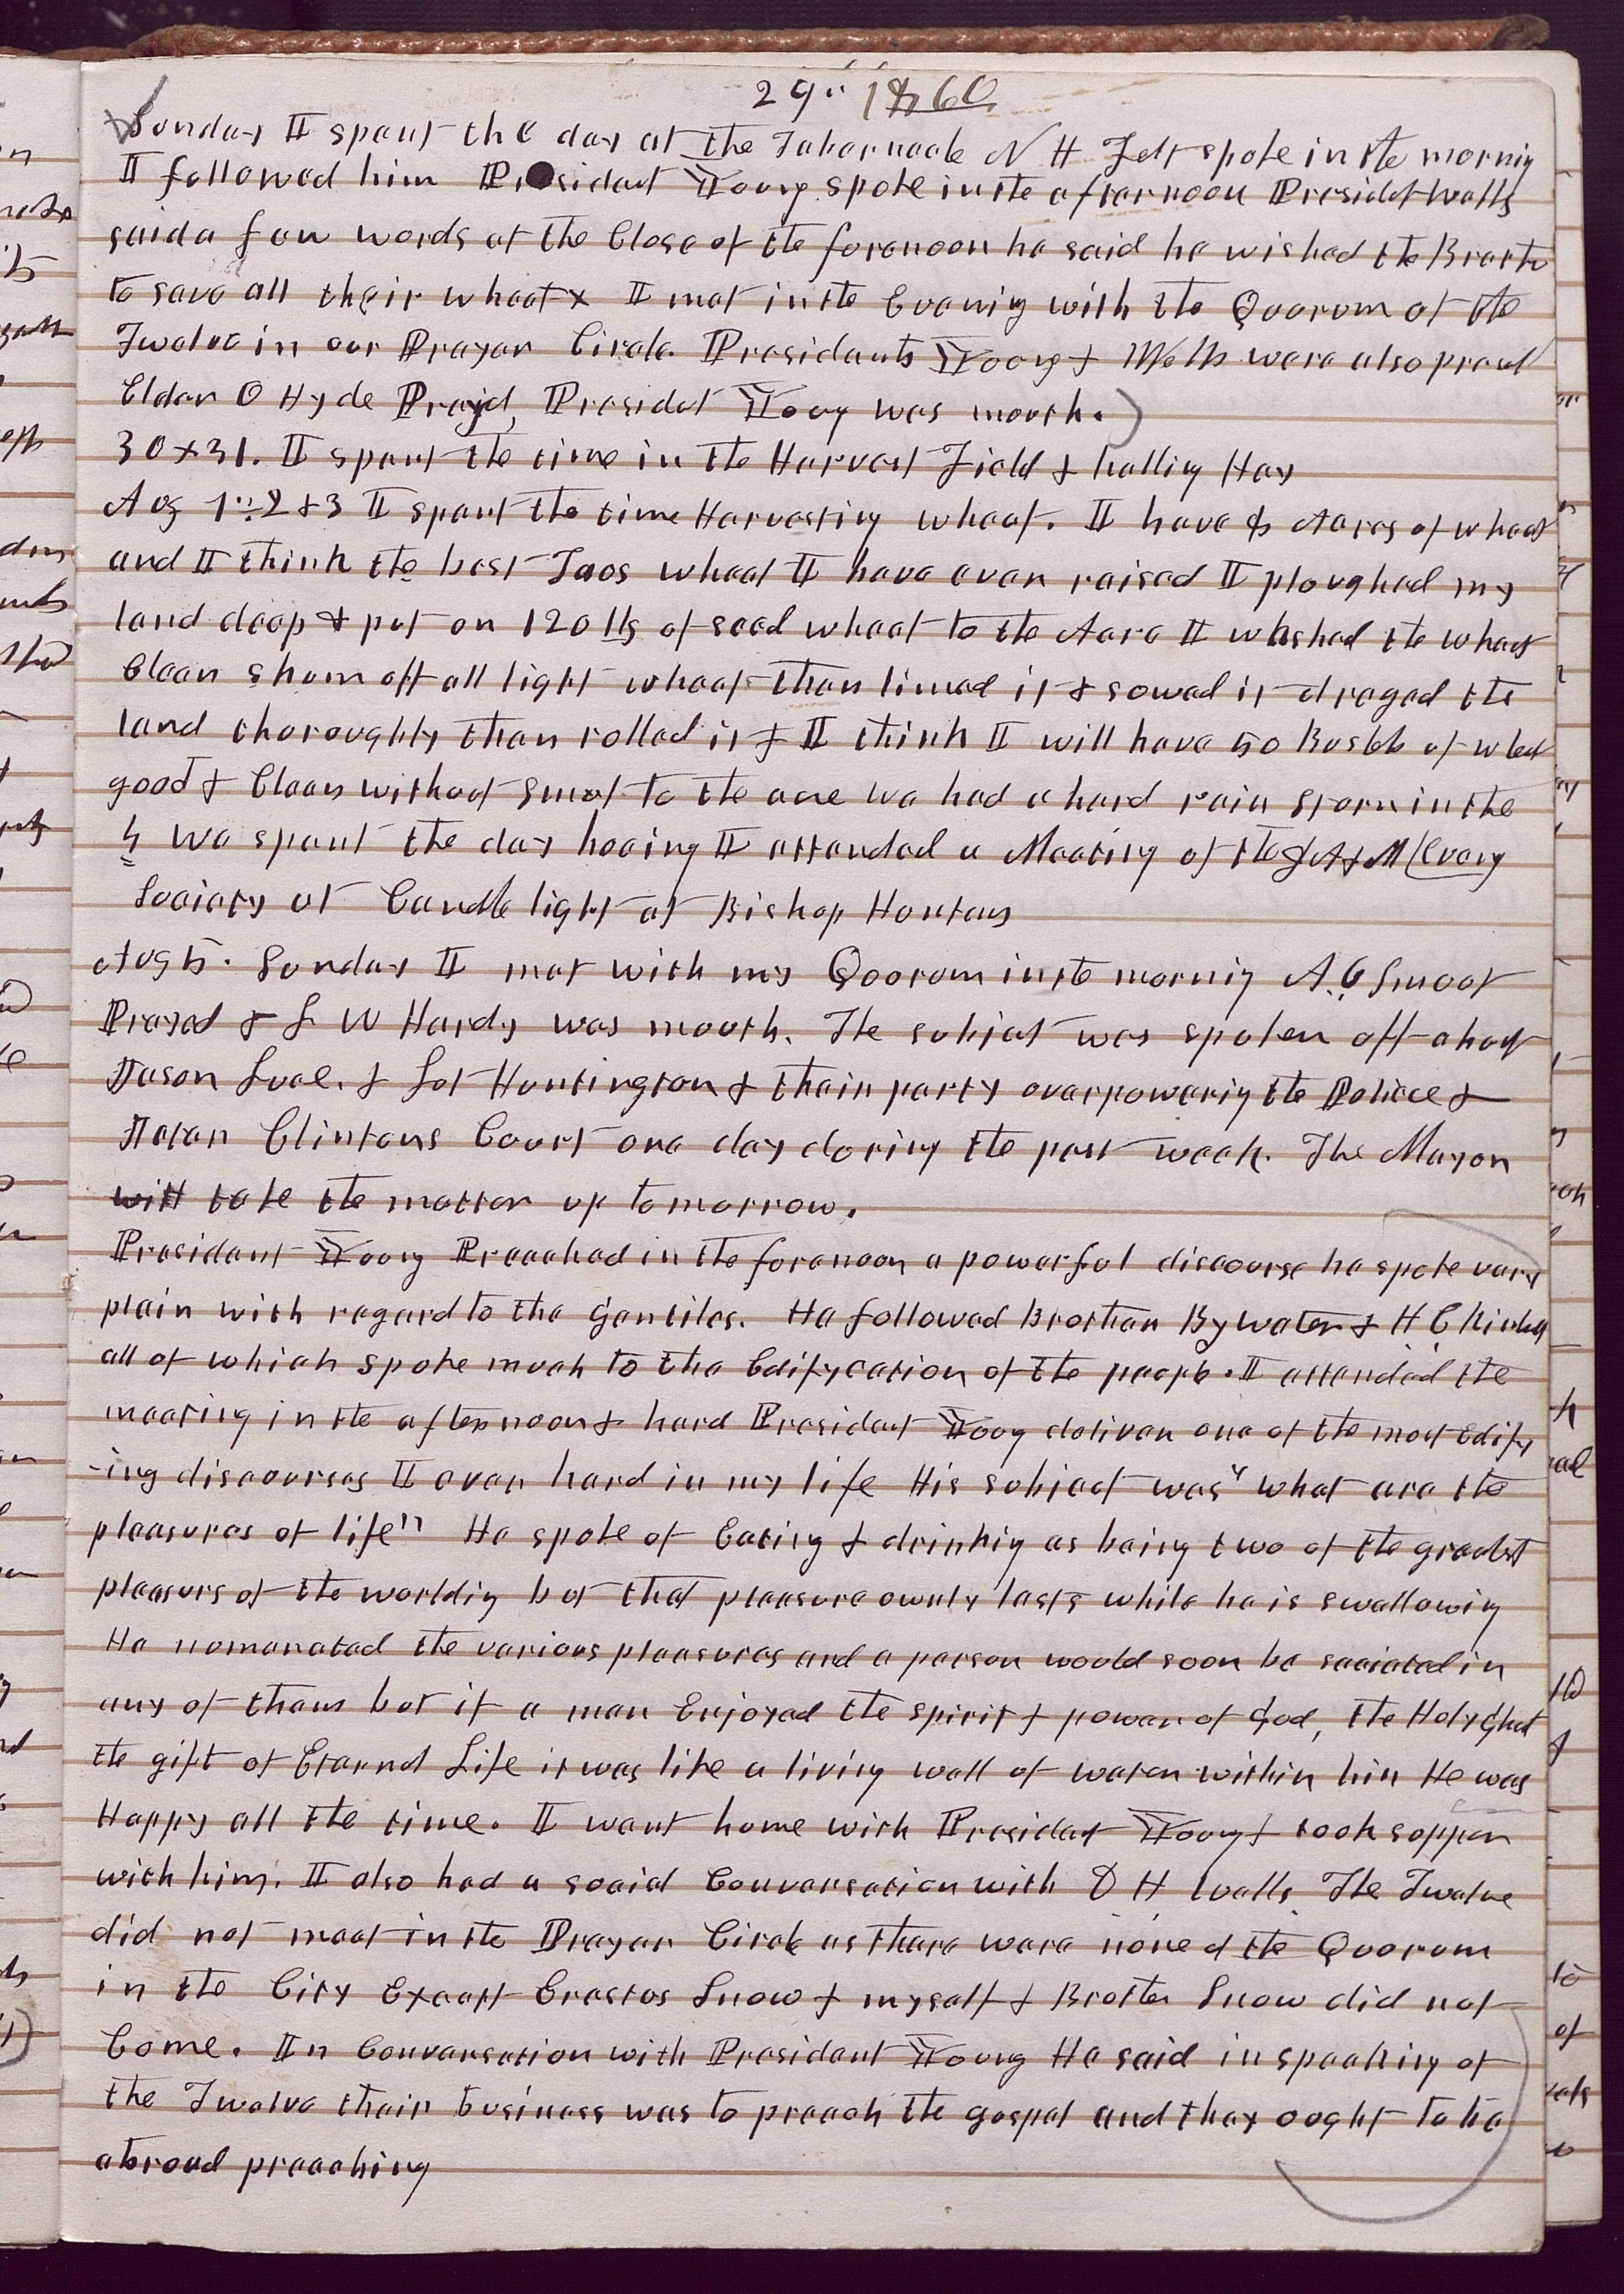 29" 1860
Sunday I spent the day at the Tabernacle N H Felt spoke in the mornig
I followed him President Young spoke in the afternoon Presidet Wells
said a few words at the Close of the forenoon he said he wished the Brethr
to save all their wheat + I met in the Evenig with the Quorum of the
Twelve in our Prayer Circle. Presidents Young & Wells were also presnt
Elder O Hyde Prayed, Presidet Young was mouth.
30 & 31. I spent the time in the Harvest Field & halling Hay
Aug 1" 2 & 3 I spent the time Harvesting wheat. I have Acres of wheat
and I think the best Taos wheat I have ever raised I ploughed my
land deep & put on 120 lbs of seed wheat to the Acre I washed the wheat
Clean skum off all light wheat then limed it & sowed it draged the
land thoroughly then rolled it & I think I will have 50 Bushels of wheat
good & Clean without smut to the acre we had a hard rain storm in the
4 We spent the day hoeing I attended a Meeting of the D A & M (Eveng
Society at Candle light at Bishop Hunters
Aug 5. Sunday I met with my Quorum in the mornig A.O Smoot
Prayed & L W Hardy was mouth. The subject was spoken off about
Jason Luce. & Lot Huntington & their party overpowerig the Police &
Jeter Clintons Court one day during the past week. The Mayor
will take the matter up to morrow.
President Young Preached in the forenoon a powerful discourse he spoke very
plain with regard to the Gentiles. He followed Brother Bywater & H C Kimball
all of which spoke much to the Edifycation of the people. I attended the
meeting in the afternoon & hard President Young deliver one of the most Edify
-ing discourses I ever hard in my life His subject was "what are the
pleasures of life" He spoke of Eating & drinkig as being two of the greatest
pleasurs of the worldig but that pleasure ownly lasts while he is swallowig
He nomerated the various pleasures and a person would soon be saciated in
any of them but if a man Enjoyed the spirit & power of God, the Holy Ghost
the gift of Eternal Life it was like a living well of water within him He was
Happy all the time. I went home with President Young & took supper
with him. I also had a social Conversation with D H Wells The Twelve
did not meet in the Prayer Circle as there were none of the Quorum
in the City Except Erastus Snow & myself & Brother Snow did not
Come. In Conversation with President Young He said in speaking of
the Twelve their business was to preach the gospel and they ought to be
abroad preaching